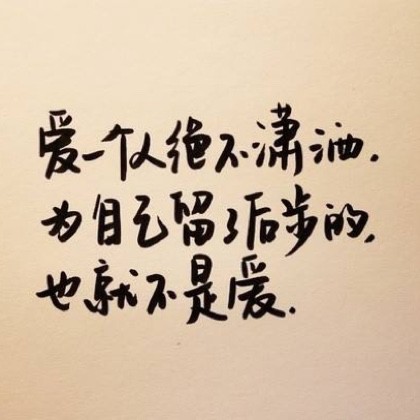 爱一个人绝不潇洒.
为自己留了后步的,
也就不是爱.